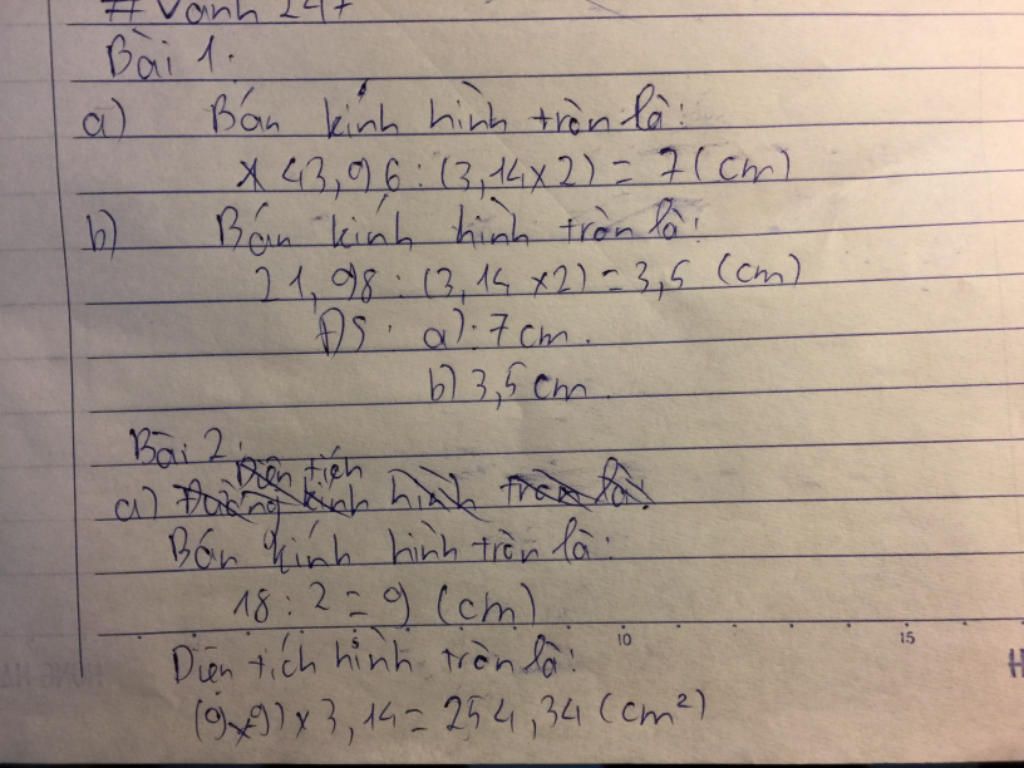 #Vanh 247
Bài 1:
a) Bán kính hình tròn là:
43,96 : (3,14 x 2) = 7 (cm)
b) Bán kính hình tròn là:
21,98 : (3,14 x 2) = 3,5 (cm)
ĐS: a): 7 cm.
b) 3,5 cm
Bài 2:
Diện tích
a) Đường kính hình tròn là:
Bán kính hình tròn là:
18 : 2 = 9 (cm)
5 10 15
Diện tích hình tròn là:
(9 x 9) x 3,14 = 254,34 (cm²)